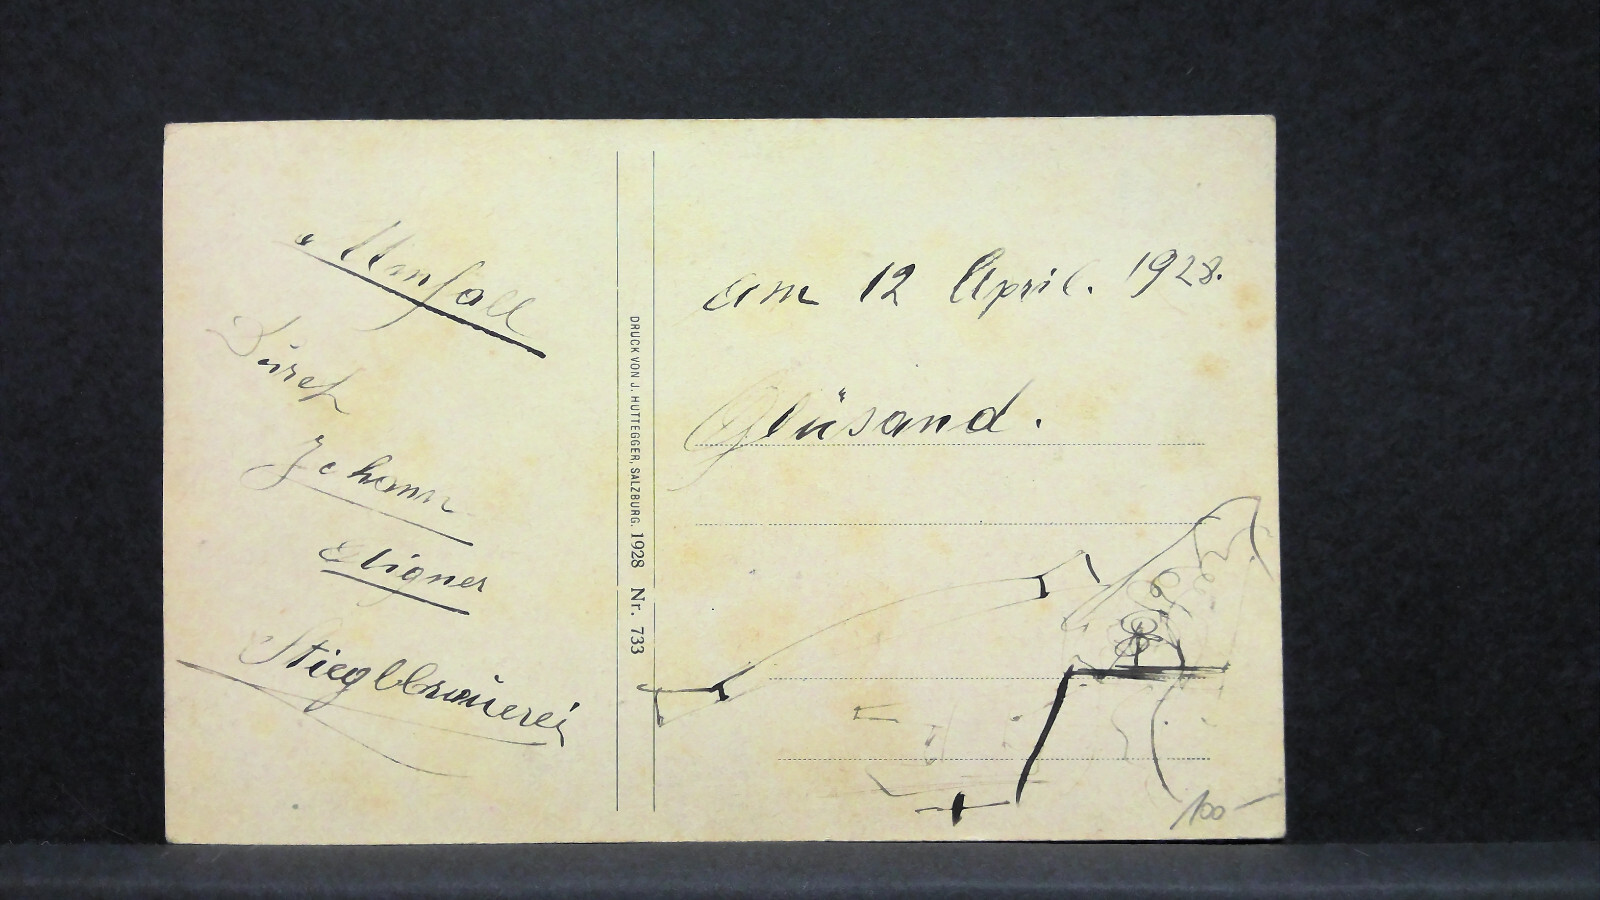 Unfall
Durch
Johann
Eligner
Stieglbrauerei
DRUCK VON J. HUTTEGGER, SALZBURG. 1928 Nr. 733
am 12 April. 1928.
Glüsand.
100